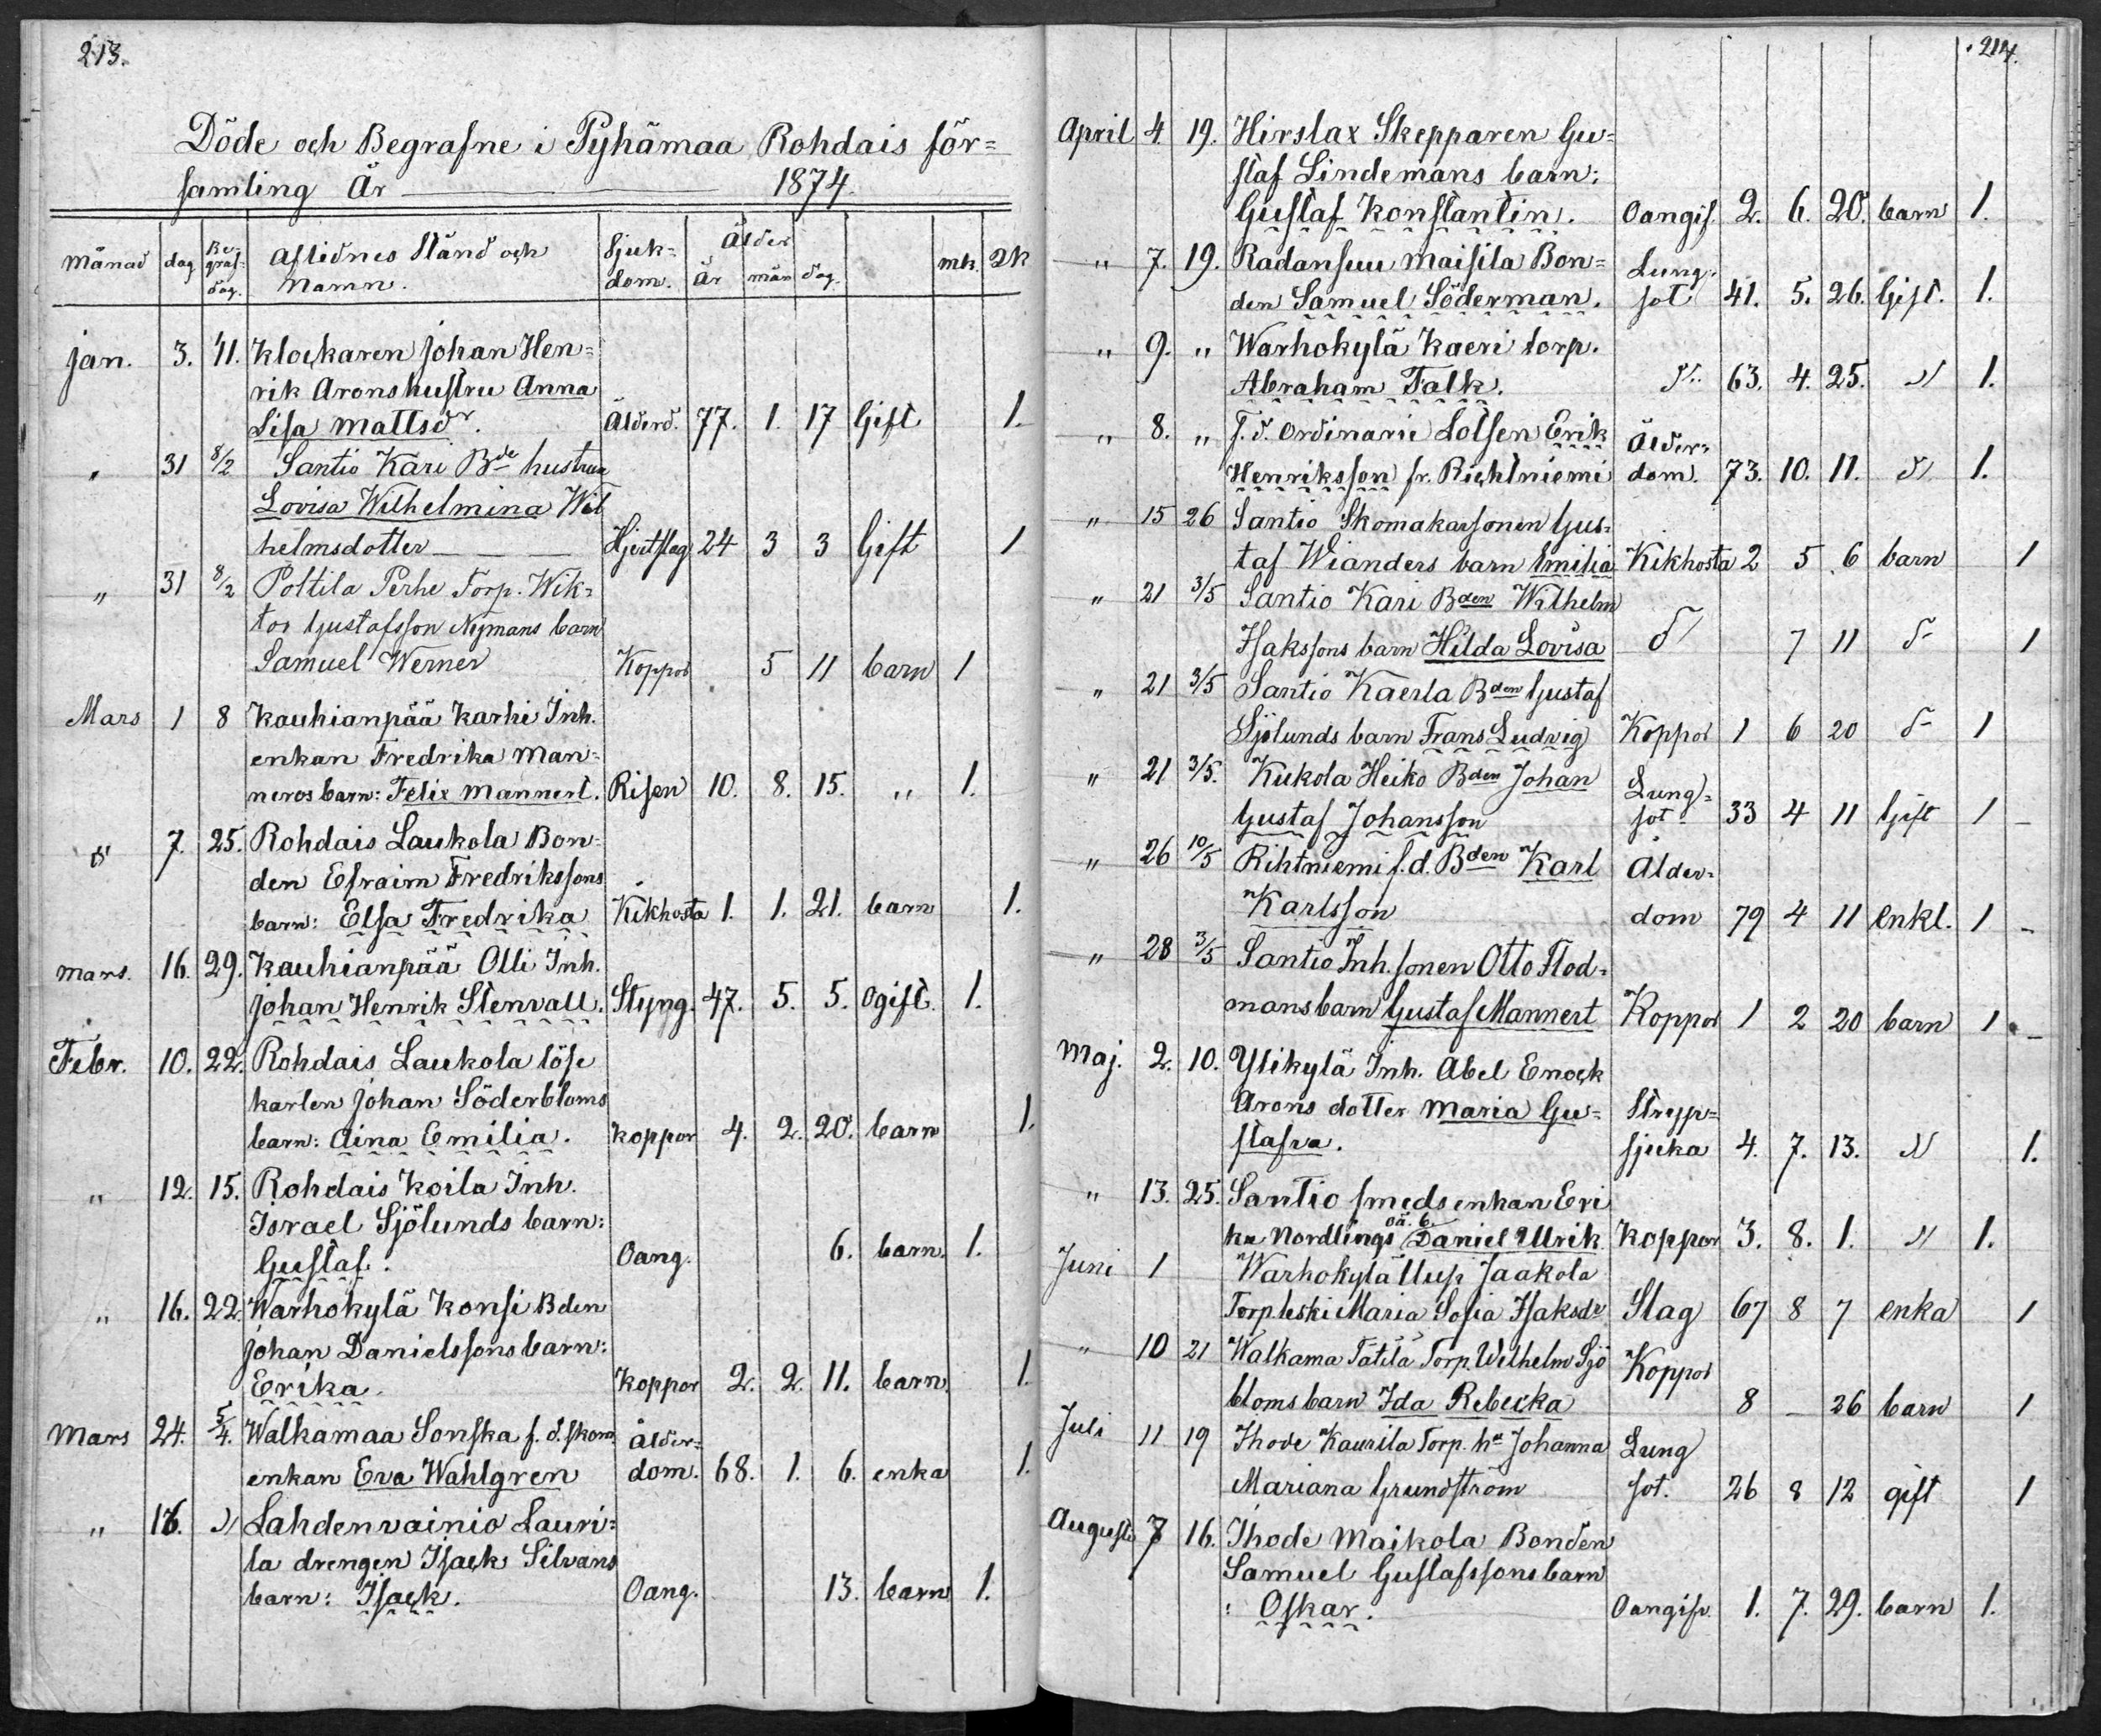 213.
Döde och Begrafne i Pyhämaa Rohdais för=
samling År 1874
Månad dag Be-graf-dag. Aflidnes Stånd och Namn. Sjuk-dom. Ålder År mån dag. mk. Qk
Jan. 3. 11. Klockaren Johan Hen=
rik Arons hustru Anna
Lisa Mattsdr. Ålderd. 77. 1. 17 Gift 1.
" 31 8/2 Santio Kari Bde hustru
Lovisa Wilhelmina Wil
helmsdotter Hjertslag 24 3 3 Gift 1
" 31 8/2 Poltila Perhe Torp. Wik=
tor Gustafsson Nymans barn
Samuel Werner Koppor 5 11 barn 1
Mars 1 8 Kauhianpää Karhi Inh.
enkan Fredrika Man=
neros barn: Felix Mannert. Risen 10. 8. 15. " 1.
d 7. 25. Rohdais Laukola Bon=
den Efraim Fredrikssons
barn: Elsa Fredrika Kikhosta 1. 1. 21. barn 1.
Mars. 16. 29. Kauhianpää Olli Inh.
Johan Henrik Stenvall. Styng. 47. 5. 5. Ogift. 1.
Febr. 10. 22. Rohdais Laukola löse
karlen Johan Söderbloms
barn: Aina Emilia. Koppor 4. 2. 20. barn 1.
" 12. 15. Rohdais Koila Inh.
Israel Sjölunds barn:
Gustaf. Oang. 6. barn. 1.
" 16. 22. Warhokylä Konsi Bden
Johan Danielssons barn:
Erika. Koppor 2. 2. 11. barn. 1.
Mars 24. 5/4. Walkamaa Sonska f. d. skom. Ålder=
enkan Eva Wahlgren dom. 68. 1. 6. enka 1.
" 16. d Lahdenvainio Lauri=
la drengen Isack Silvans
barn: Isack. Oang. 13. barn 1.
214.
April 4. 19. Hirslax Skepparen Gu=
staf Lindemans barn:
Gustaf Konstantin. Oangif. 2. 6. 20. barn 1.
" 7. 19. Radansuu Maisila Bon= Lung=
den Samuel Söderman. sot 41. 5. 26. Gift. 1.
" 9. " Warhokylä Kaeri torp.
Abraham Falk. d.. 63. 4. 25. d 1.
" 8. " f. d. ordinarie Lotsen Erik Ålder=
Henriksson fr. Richtniemi dom. 73. 10. 11. d 1.
" 15 26 Santio Skomakarsonen Gus=
taf Wianders barn Emilia Kikhosta 2 5 6 barn 1
" 21 3/5 Santio Kari Bden Wilhelm
Isakssons barn Hilda Lovisa d 7 11 d 1
" 21 3/5 Santio Kaerla Bden Gustaf
Sjölunds barn Frans Ludvig Koppor 1 6 20 d 1
" 21 3/5. Kukola Heiko Bden Johan Lung=
Gustaf Johansson sot 33 4 11 Gift 1
" 26 10/5 Rihtniemi f. d. Bden Karl Ålder=
Karlsson dom 79 4 11 enkl. 1
" 28 3/5 Santio Inh. sonen Otto Flod=
mans barn Gustaf Mannert Koppor 1 2 20 barn 1
Maj. 2. 10. Ylikylä Inh. Abel Enock
Arons dotter Maria Gu= Stryp=
stafva. sjuka 4. 7. 13. d 1.
" 13. 25. Santio smeds enkan Eri
ka Nordlings oä. b. Daniel Ulrik Koppor 3. 8. 1. d 1.
Juni 1 Warhokylä Uusi Jaakola
Torp.leski Maria Sofia Isaksdr Slag 67 8 7 enka 1
" 10 21 Walkama Tätilä Torp. Wilhelm Sjö Koppor
bloms barn Ida Rebecka 8 26 barn 1
Juli 11 19 Ihode Kaurila Torp. hu Johanna Lung
Mariana Grundström sot. 26 8 12 gift 1
Augusti 7 16. Ihode Maikola Bonden
Samuel Gustafssons barn
: Oskar. Oangifv. 1. 7. 29. barn 1.